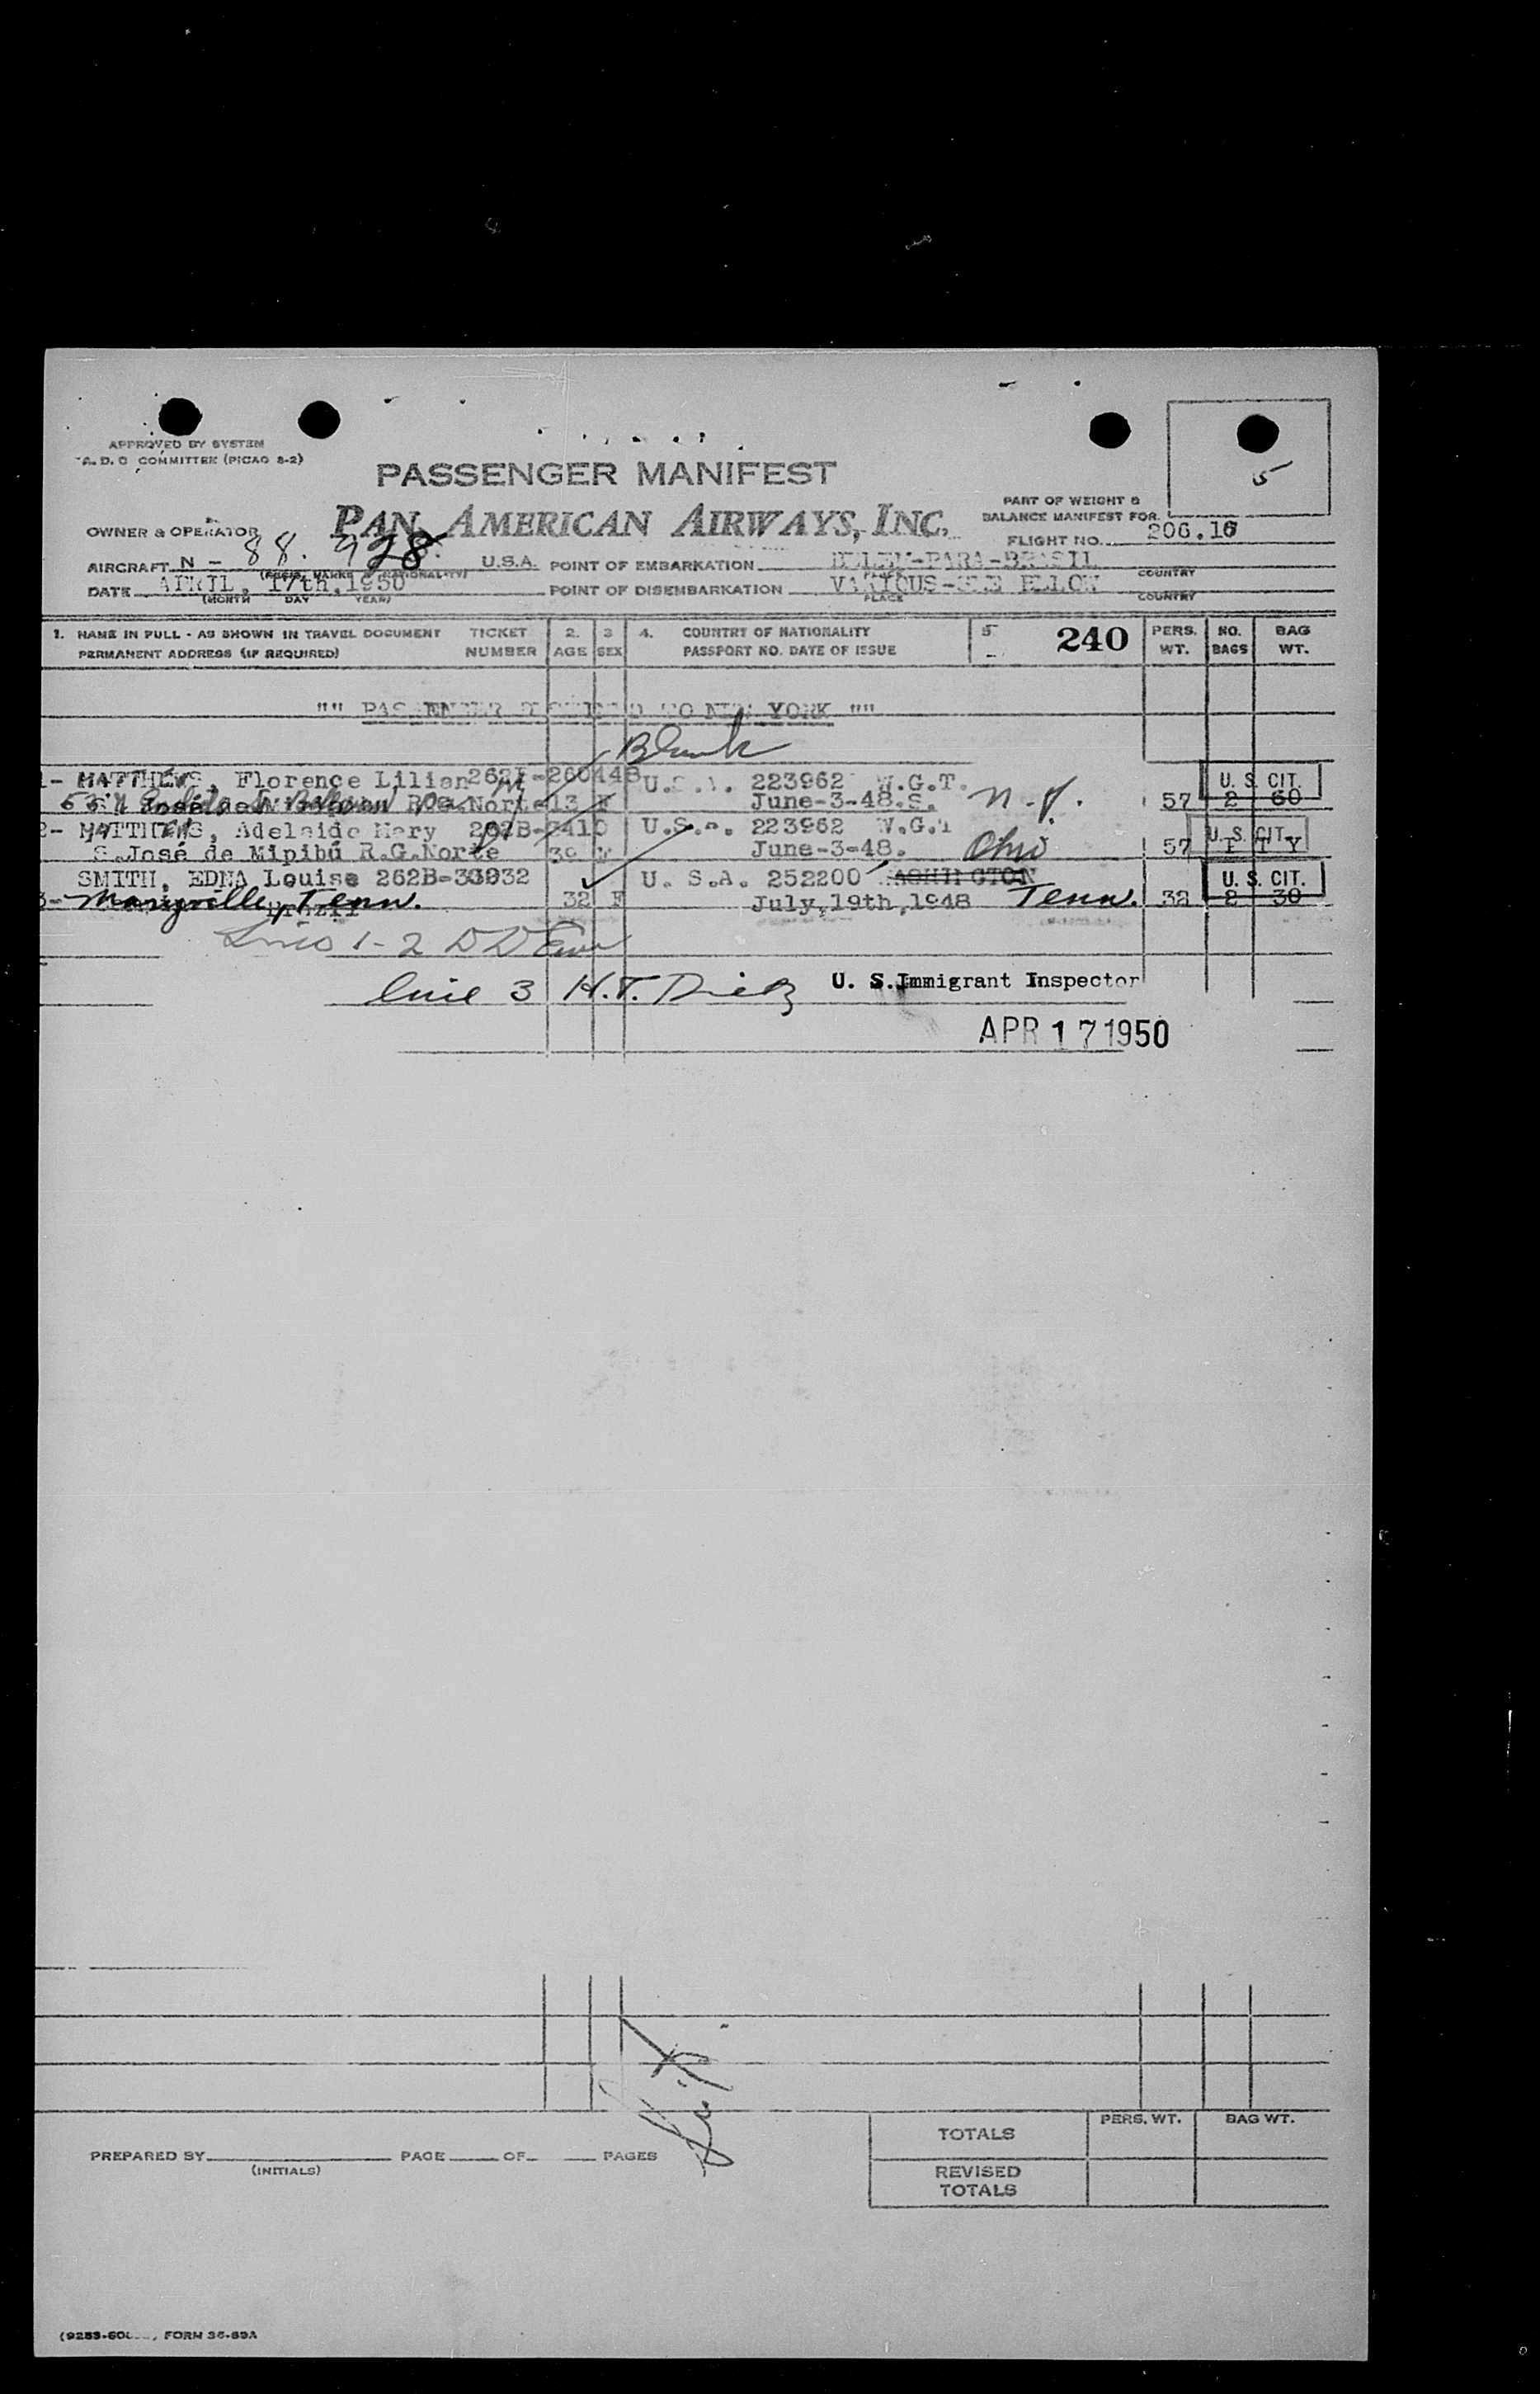 APPROVED BY SYSTEM
COMMITTEE (PICAO 8-2)
5
PASSENGER MANIFEST
PART OF WEIGHT &
BALANCE MANIFEST FOR
OWNER & OPERATOR PAN AMERICAN AIRWAYS, INC.
FLIGHT NO. 206.16
AIRCRAFT N - 88.928 U.S.A. POINT OF EMBARKATION BELEM-PARA-BRASIL
(REGIS. MARKS & NATIONALITY) COUNTRY
DATE APRIL, 17th, 1950 POINT OF DISEMBARKATION VARIOUS-SEE BELOW
(MONTH DAY YEAR) PLACE COUNTRY
1. NAME IN FULL - AS SHOWN IN TRAVEL DOCUMENT TICKET 2. 3 4. COUNTRY OF NATIONALITY 5 240 PERS. NO. BAG
PERMANENT ADDRESS (IF REQUIRED) NUMBER AGE SEX PASSPORT NO. DATE OF ISSUE WT. BAGS WT.
"" PASSENGER TO NEW YORK ""
Blank
1- MATTHEWS, Florence Lilian U.S.A. 223962 W.G.T. U.S. CIT.
Norte 13 F June-3-48. N.J. 57 2 60
2- MATTHEWS, Adelaide Mary U.S.A. 223962 W.G.T U.S. CIT.
S.José de Mipibú R.G.Norte 39 June-3-48. Ohio 57 T Y
SMITH, EDNA Louise U. S.A. 252200 WASHINGTON U.S. CIT.
3- Maryville, Tenn. Brazil 32 F July, 19th, 1948 Tenn. 2 30
1-2
line 3 H.T. U. S. Immigrant Inspector
APR 17 1950
TOTALS PERS. WT. BAG WT.
PREPARED BY PAGE OF PAGES
(INITIALS)
REVISED
TOTALS
FORM